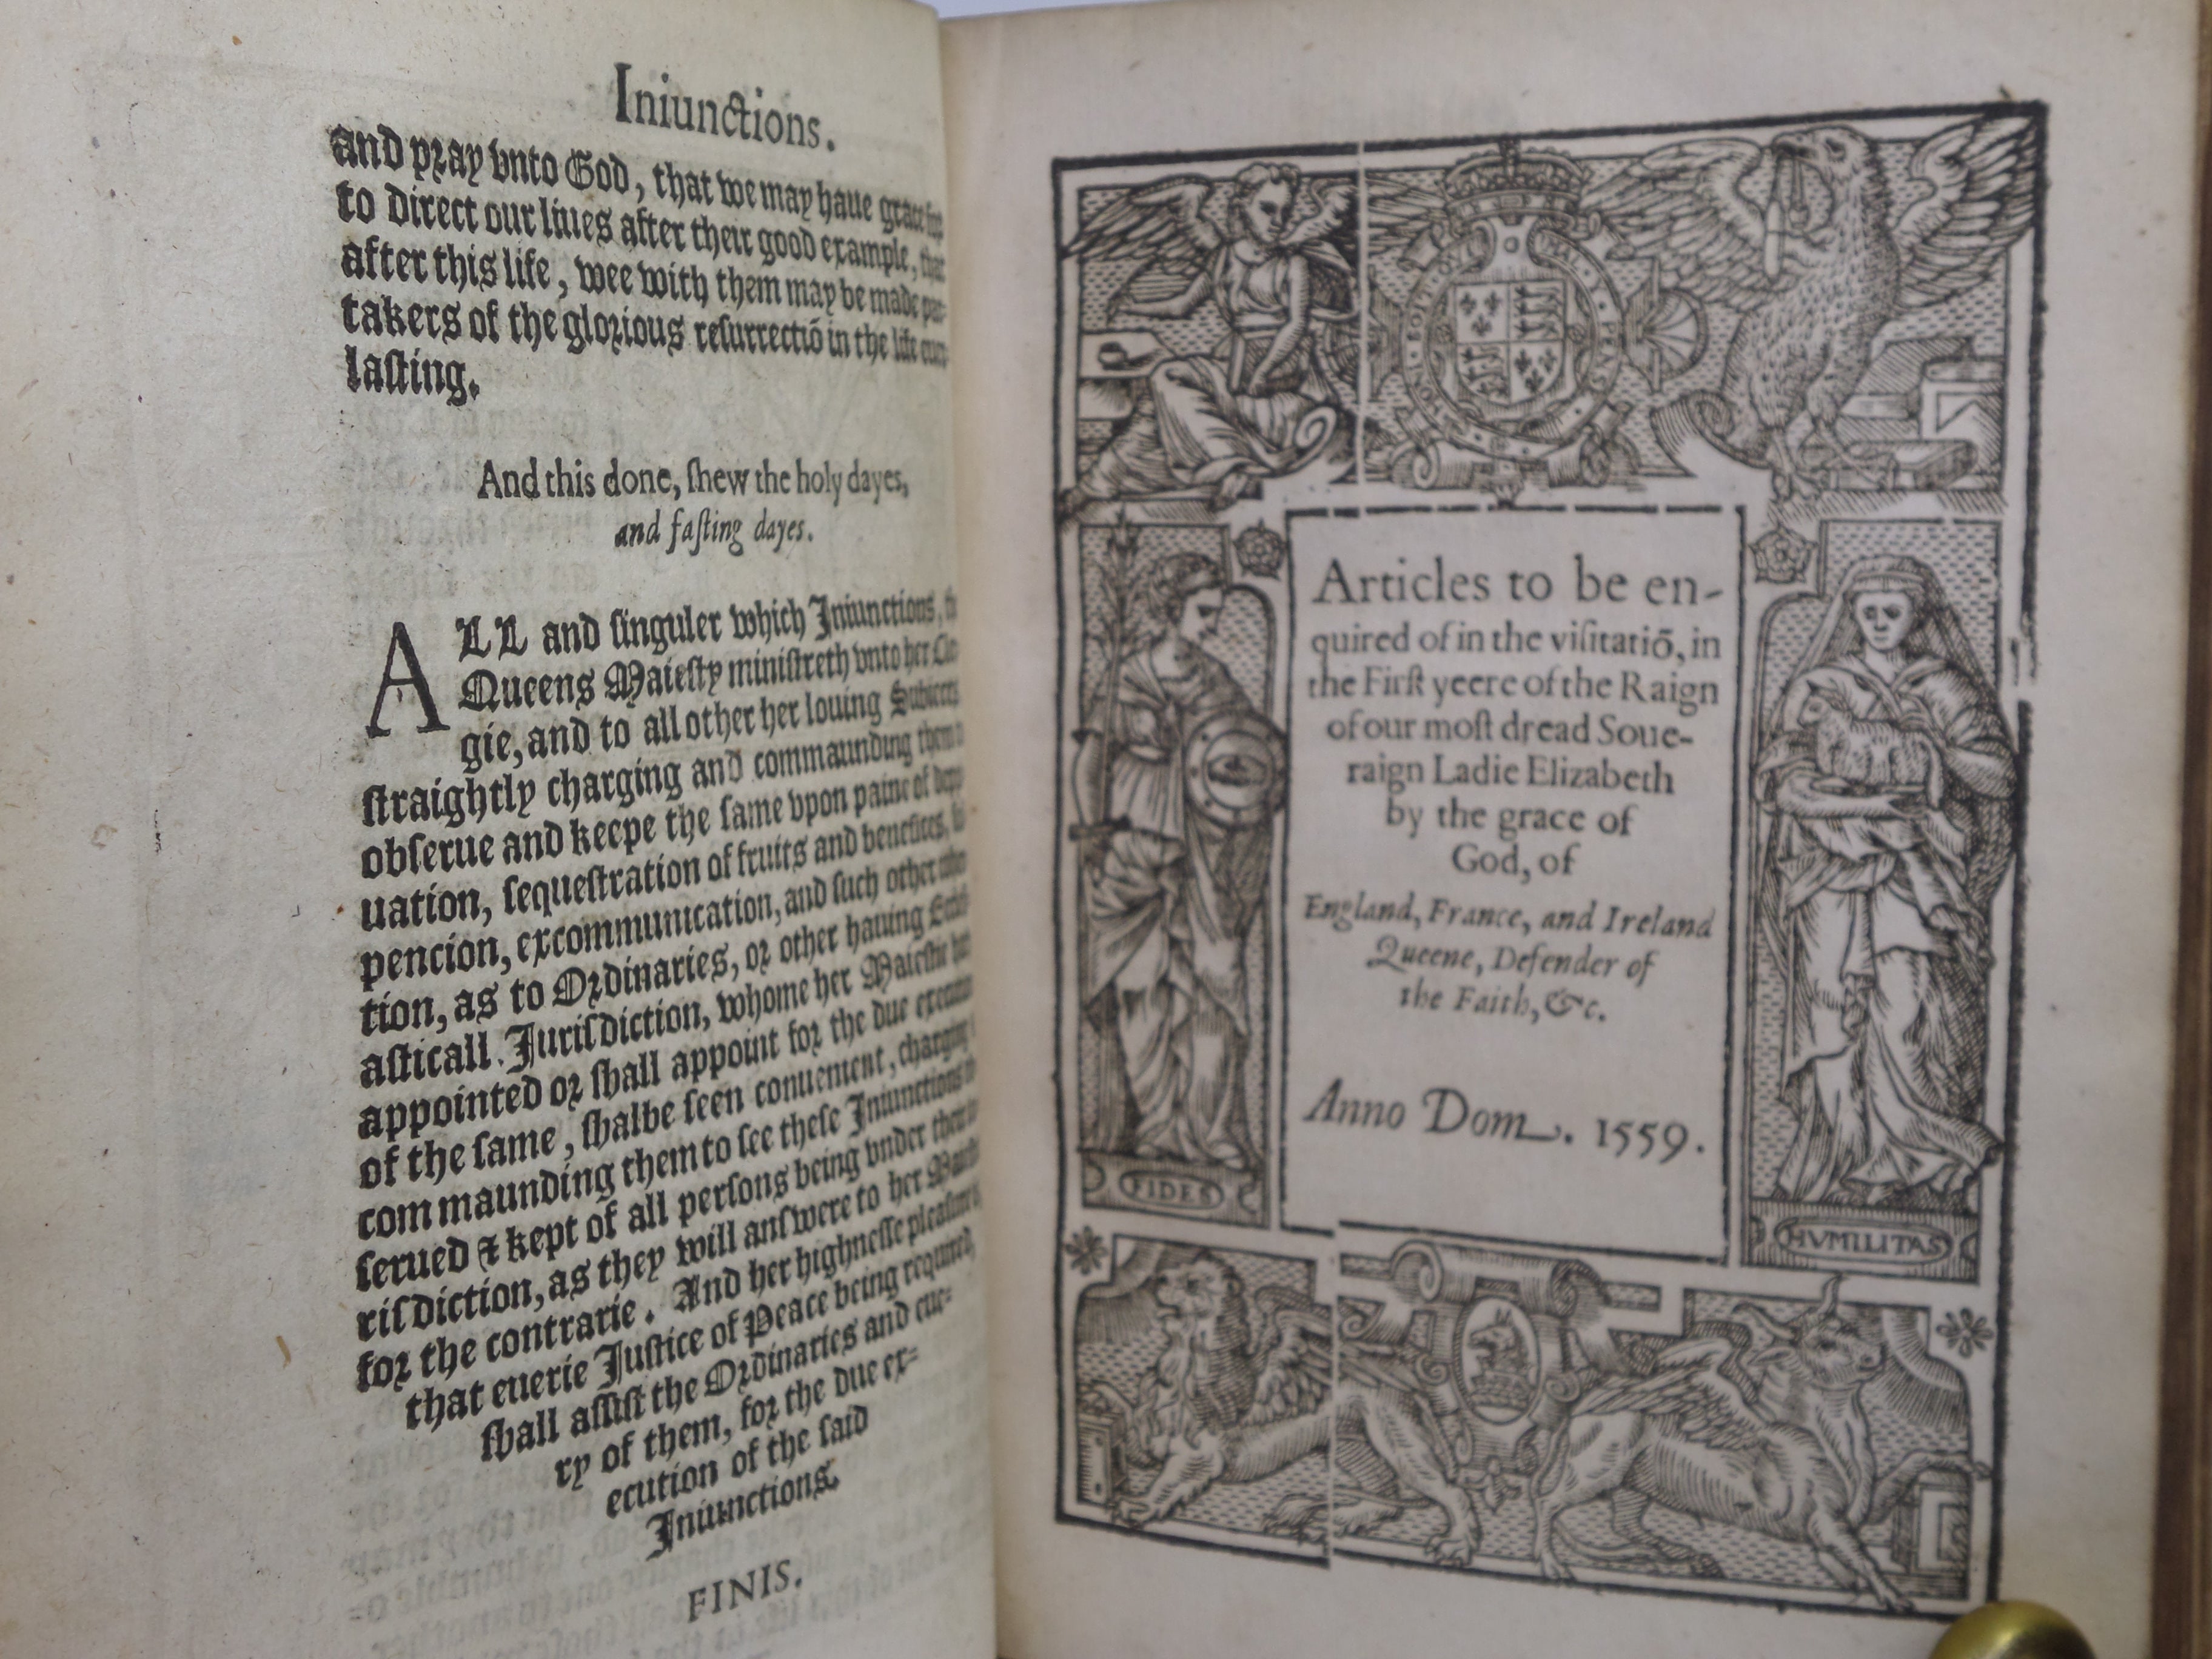 Iniunctions.
and pray vnto God, that we may haue grace so
to direct our liues after their good example, that
after this life, wee with them may be made par-
takers of the glorious resurrectiō in the life euer-
lasting.
And this done, shew the holy dayes,
and fasting dayes.
ALL and singuler which Iniunctions, the
Queens Maiesty ministreth vnto her Cler-
gie, and to all other her louing Subiects,
straightly charging and commaunding them to
obserue and keepe the same vpon paine of depri-
uation, sequestration of fruits and benefices, sus-
pencion, excommunication, and such other
tion, as to Ordinaries, or other hauing Ecclesi-
asticall Iurisdiction, whome her Maiestie hath
appointed or shall appoint for the due execution
of the same, shalbe seen conuenient, charging &
commaunding them to see these Iniunctions ob-
serued & kept of all persons being vnder their Iu-
risdiction, as they will answere to her Maiestie
for the contrarie. And her highnesse pleasure is,
that euerie Justice of Peace being required,
shall assist the Ordinaries and eue-
ry of them, for the due ex-
ecution of the said
Iniunctions.
FINIS.
HONI SOIT QUI MAL Y PENSE
Articles to be en-
quired of in the visitatiō, in
the First yeere of the Raign
of our most dread Soue-
raign Ladie Elizabeth
by the grace of
God, of
England, France, and Ireland
Queene, Defender of
the Faith, &c.
Anno Dom. 1559.
FIDES
HVMILITAS